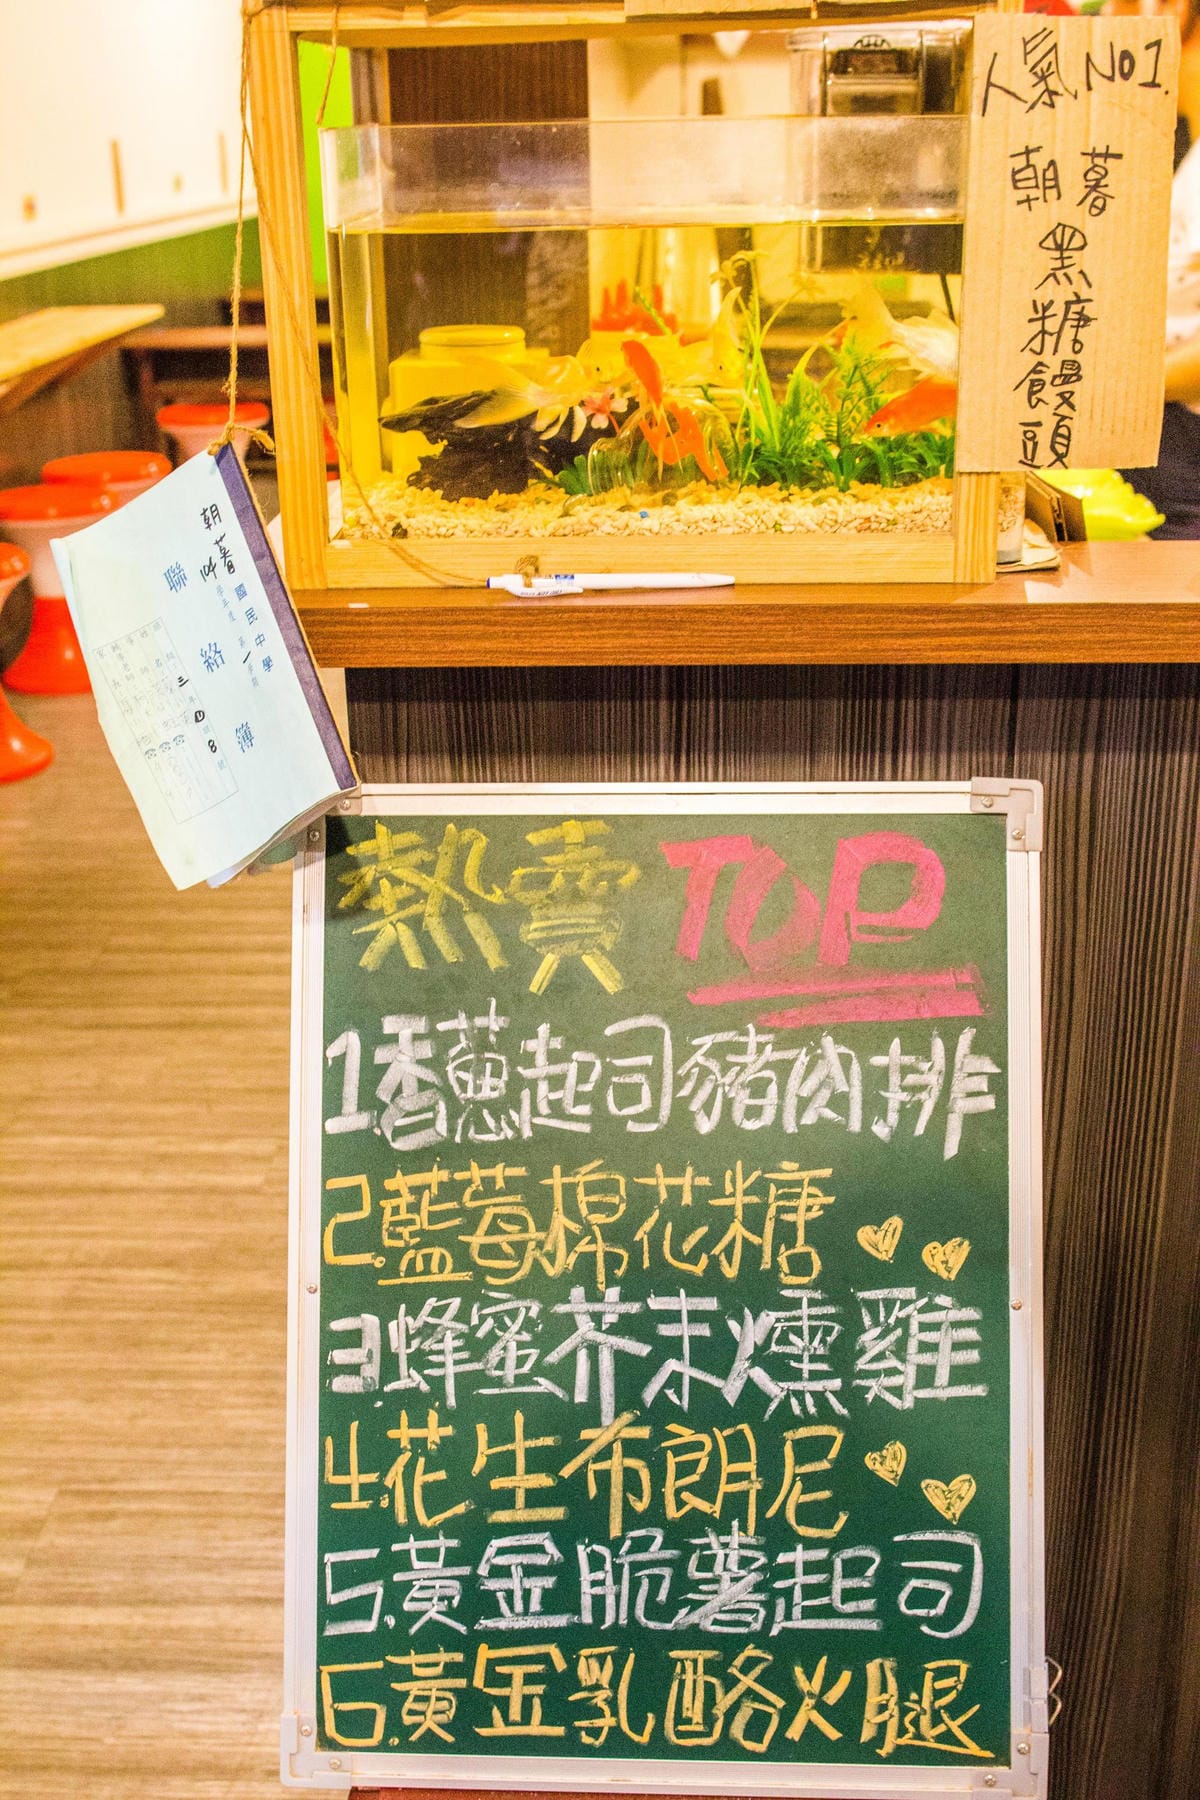 人氣 NO1.
朝暮
黑糖饅頭
朝暮國民中學
104學年度 第一學期
聯絡簿
三年
8號
熱賣 TOP
1.香蔥起司豬肉排
2.藍莓棉花糖
3.蜂蜜芥末燻雞
4.花生布朗尼
5.黃金脆薯起司
6.黃金乳酪火腿